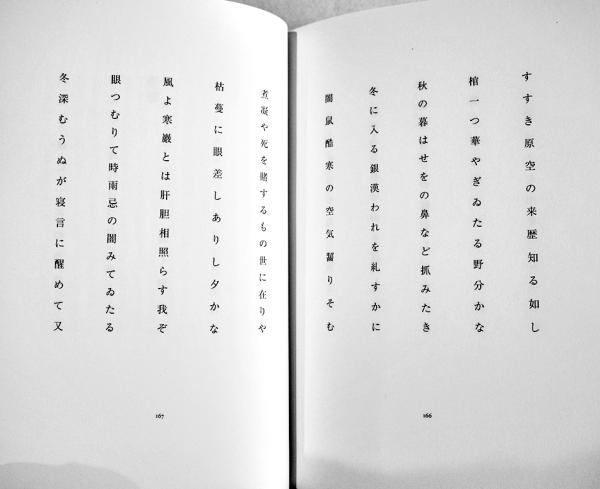 すすき原空の来歴知る如し
棺一つ華やぎゐたる野分かな
秋の暮はせをの鼻など抓みたき
冬に入る銀漢われを糺すかに
闇鼠酷寒の空気齧りそむ
166
煮凝や死を賭するもの世に在りや
枯蔓に眼差しありし夕かな
風よ寒巌とは肝胆相照らす我ぞ
眼つむりて時雨忌の闇みてゐたる
冬深むうぬが寝言に醒めて又
167